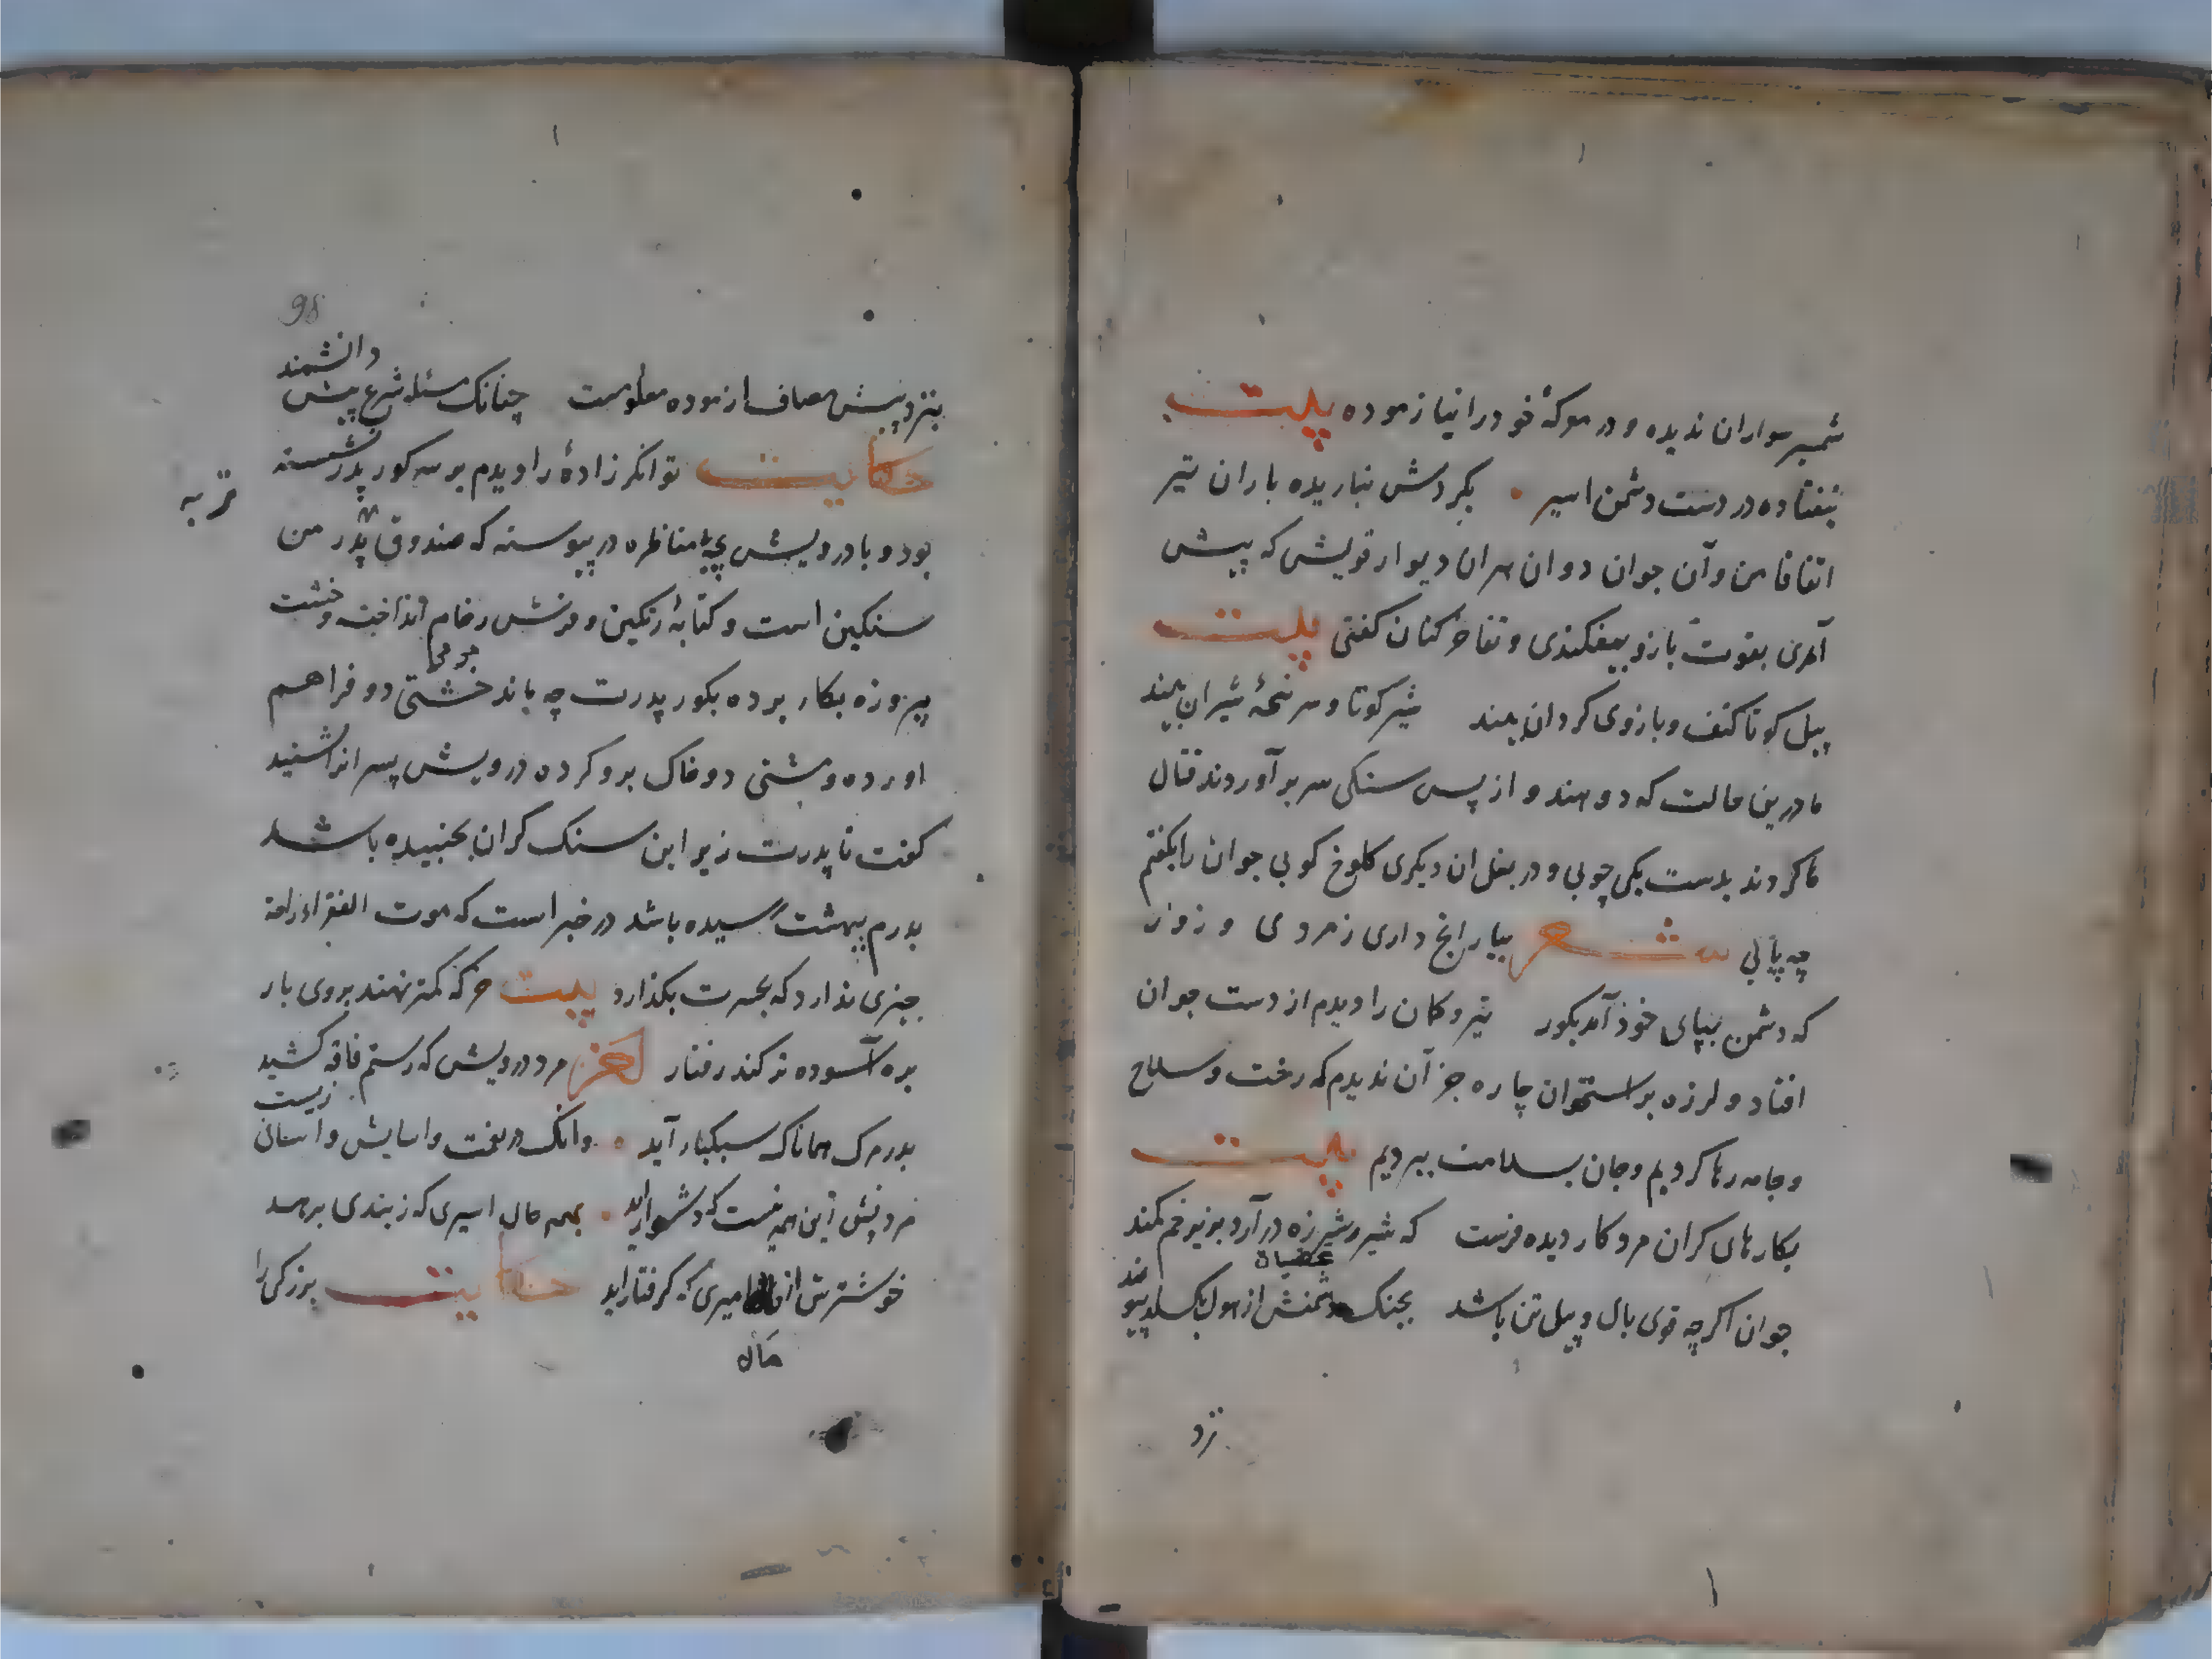 شمیر سواران ندیده و در موکهٔ خود را نیازموده بیت
نیفتاده در دست دشمن اسیر بکردش نباریده باران تیر
اتفاقا من و آن جوان دوان هران دیوار قویش که پیش
آمدی بقوت بازو بیفکندی و تفاخر کنان کفتی بیت
پیل کو تا کتف و بازوی کردان بیند شیر کو تا و سر پنجهٔ شیران بیند
ما درین حالت که دو هندو از پس سنکی سر بر آوردند قتال
ما کردند بدست یکی چوبی و در بغل ان دیکری کلوخ کوبی جوان را بکفتم
چه پائی شعر بیار انچ داری ز مردی و زور
که دشمن بپای خود آمد بکور تیر و کمان را دیدم از دست جوان
افتاد و لرزه بر استخوان چاره جز آن ندیدم که رخت و سلاح
و جامه رها کردیم و جان بسلامت ببردیم بیت
بکارهای کران مرد کار دیده فرست که شیر شرزه در آرد بزیر خم کمند
جوان اکر چه قوی یال و پیل تن باشد بجنک دشمنش از هول بکسلد پیوند
نزد
98
دانشمند
بنزد پیش مصاف ازموده معلومست چنانک مسئله شرع پیش
حکایت توانکر زادهٔ را دیدم بر سر کور پدر نشسته
بود و با درویش بچهٔ مناظره در پیوسته که صندوق پدر من
سنکین است و کتابه رنکین و فرش رخام انداخته و خشت
پیروزه بکار برده بکور پدرت چه ماند خشتی دو فراهم
اورده و مشتی دو خاک برو کرده درویش پسر انرا شنید
کفت تا پدرت زیر این سنک کران بجنبیده باشد
پدرم ببهشت رسیده باشد در خبر است که موت الفقراء راحة
چیزی ندارد که بحسرت بکذارد بیت خر که کمتر نهند بروی بار
بره آسوده تر کند رفتار لغز مرد درویش که ستم فاقه کشید
بدر مرک همانا که سبکبار آید وانک در نعمت و اسایش و اسانی زیست
مردنش زین همه نیست که دشوار اید بهمه حال اسیری که ز بندی برهد
خوشترش از امیری که کرفتار اید حکایت بزرکی را